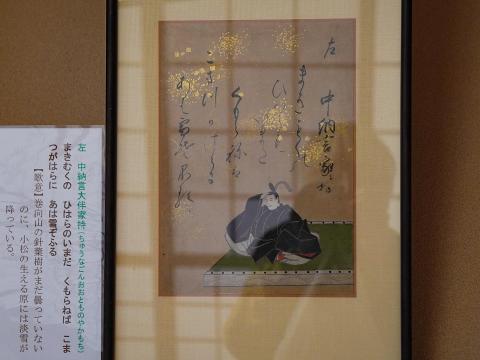 左
中納言家持
まきもくの
ひはらのいまた
くもらねは
こまつかはらに
あは雪そふる
左 中納言大伴家持(ちゅうなごんおおとものやかもち)
まきむくの ひはらのいまだ くもらねば こま
つがはらに あは雪ぞふる
【歌意】巻向山の針葉樹がまだ曇っていない
のに、小松の生える原には淡雪が
降っている。